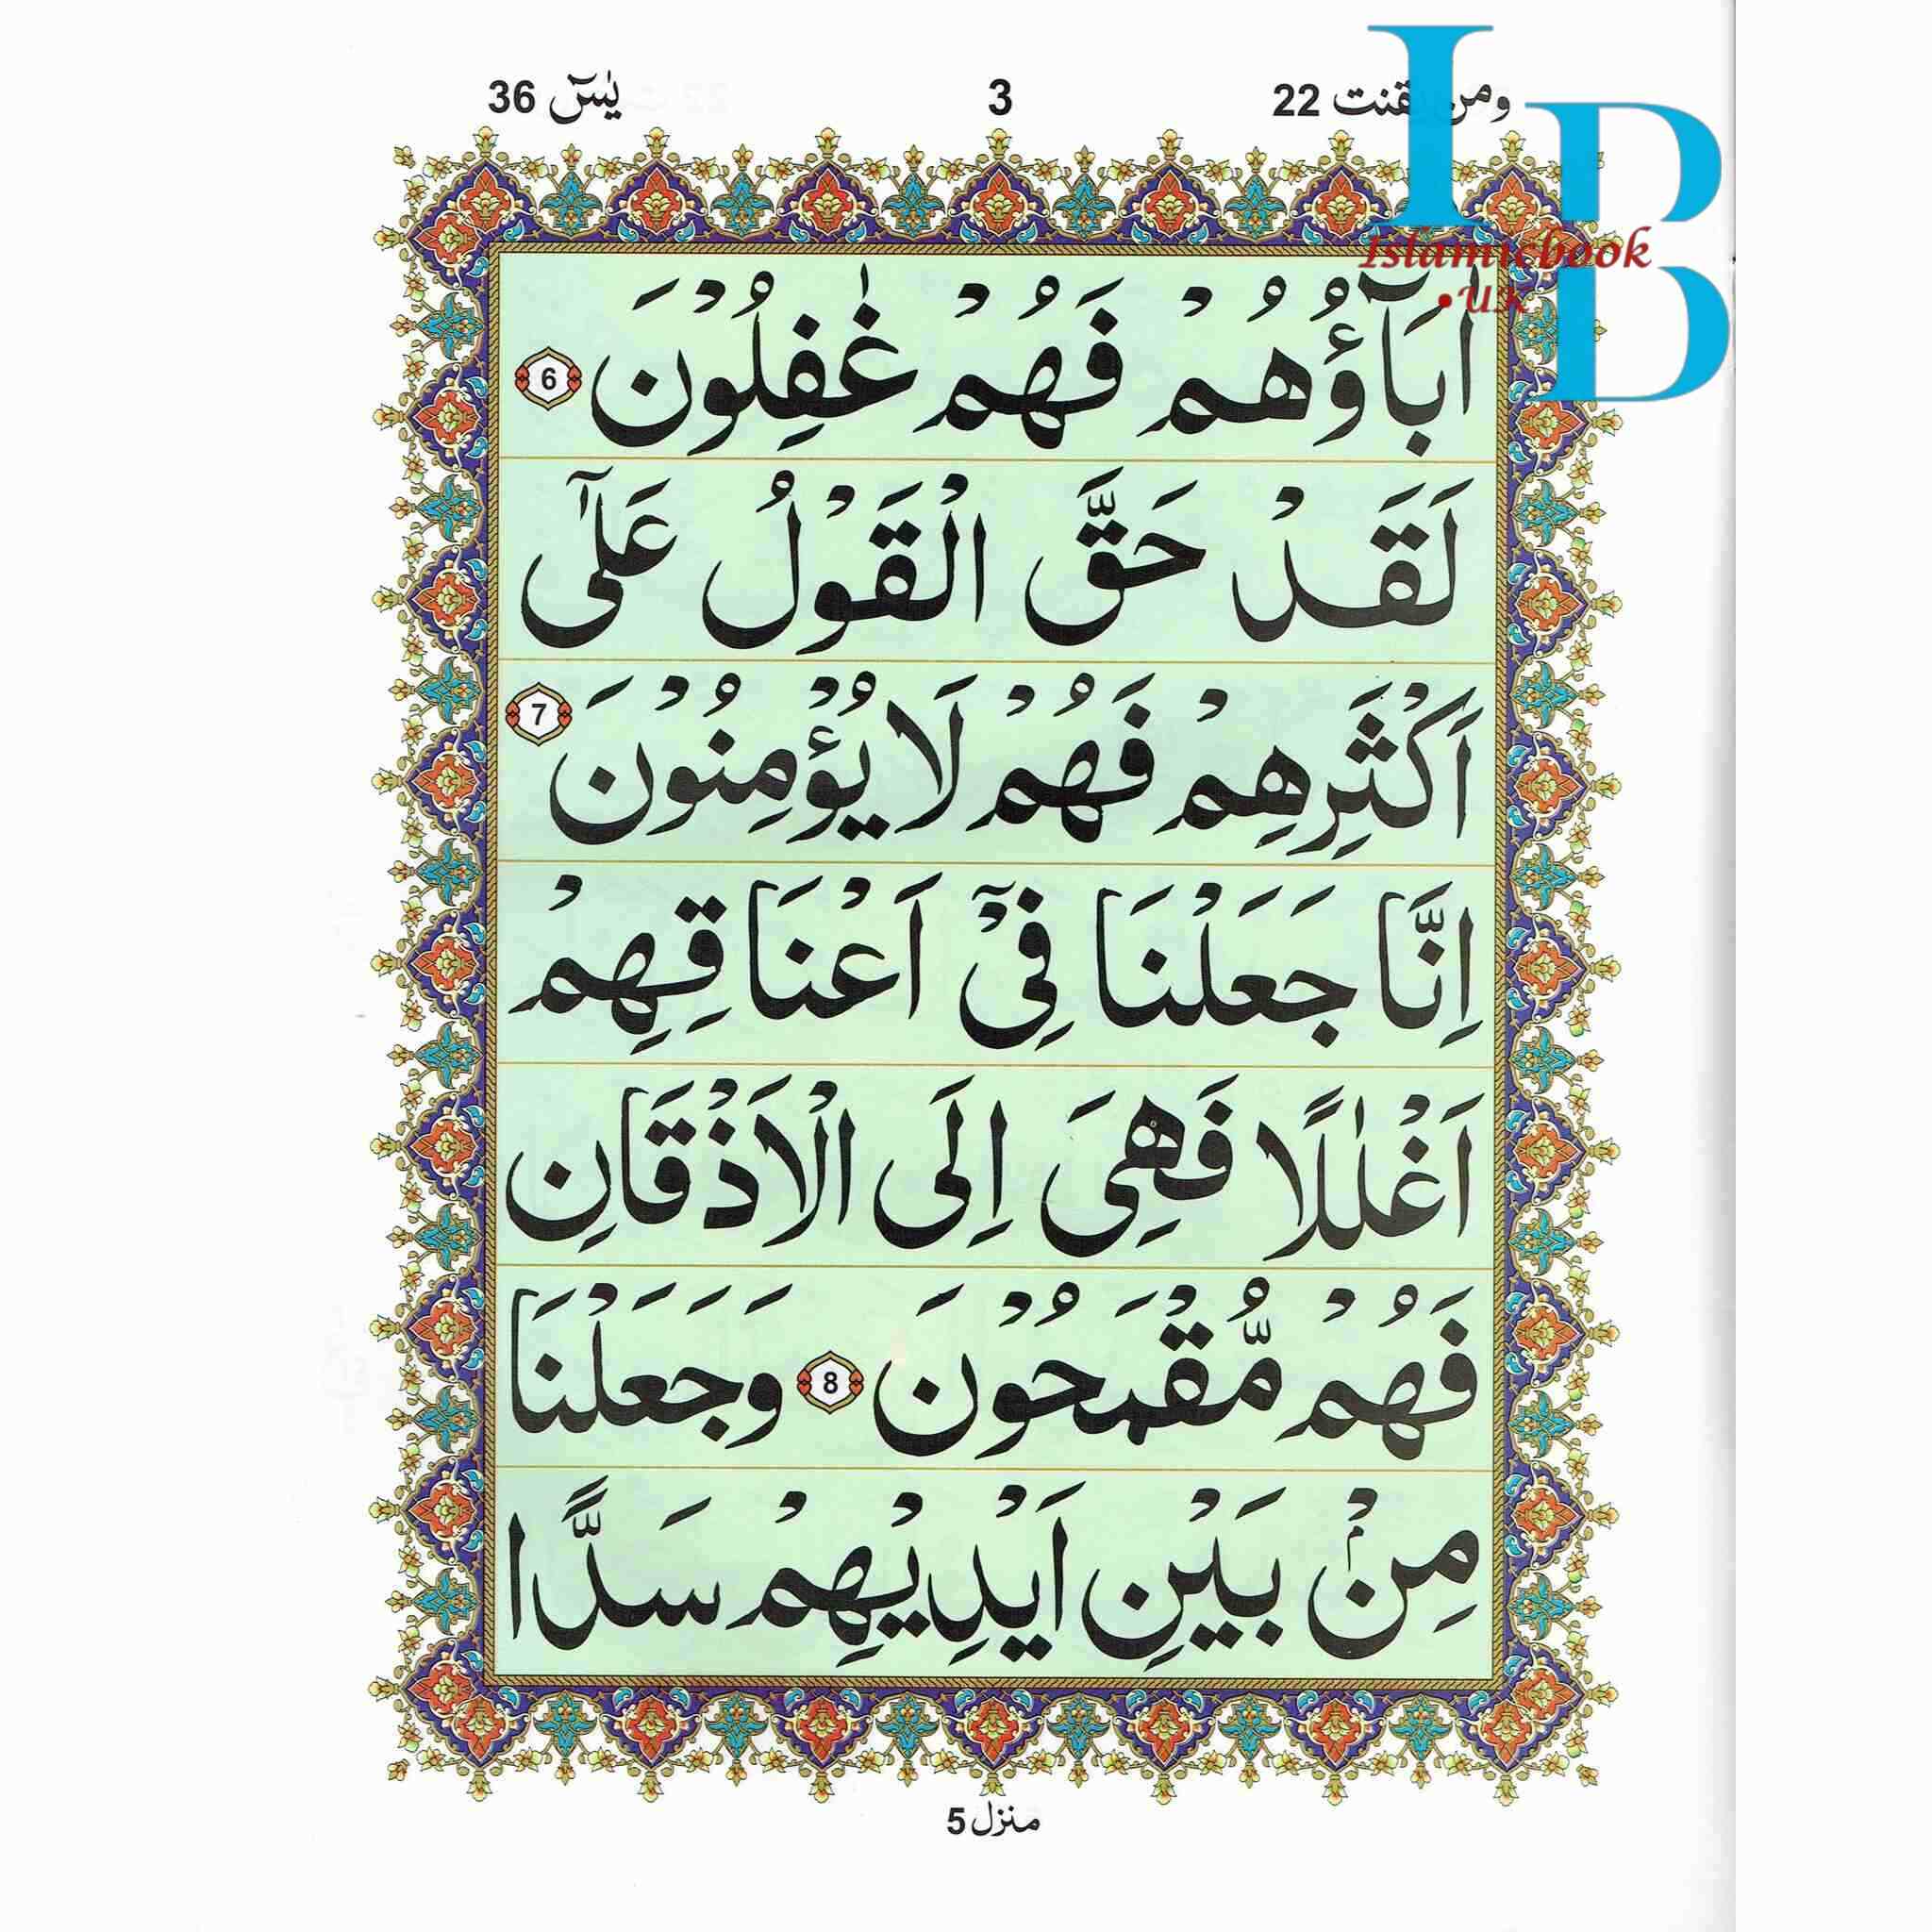 ومن يقنت 22
3
يٰسٓ 36
IBB
Islamicbook
.UK
اٰبَآؤُهُمْ فَهُمْ غٰفِلُوْنَ 6
لَقَدْ حَقَّ الْقَوْلُ عَلٰٓى
اَكْثَرِهِمْ فَهُمْ لَا يُؤْمِنُوْنَ 7
اِنَّا جَعَلْنَا فِيْٓ اَعْنَاقِهِمْ
اَغْلٰلًا فَهِيَ اِلَى الْاَذْقَانِ
فَهُمْ مُّقْمَحُوْنَ 8 وَجَعَلْنَا
مِنْۢ بَيْنِ اَيْدِيْهِمْ سَدًّا
منزل 5